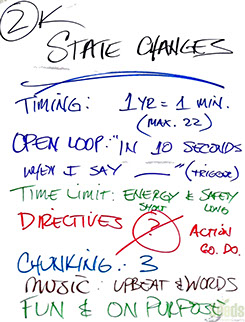 2 K
STATE CHANGES
TIMING: 1 YR = 1 MIN.
(MAX. 22)
OPEN LOOP: "IN 10 SECONDS
WHEN I SAY ___" (TRIGGER)
TIME LIMIT: ENERGY & SAFETY
SHORT LONG
DIRECTIVES ? ACTION
GO. DO.
CHUNKING: 3
MUSIC: UPBEAT & WORDS
FUN & ON PURPOSE